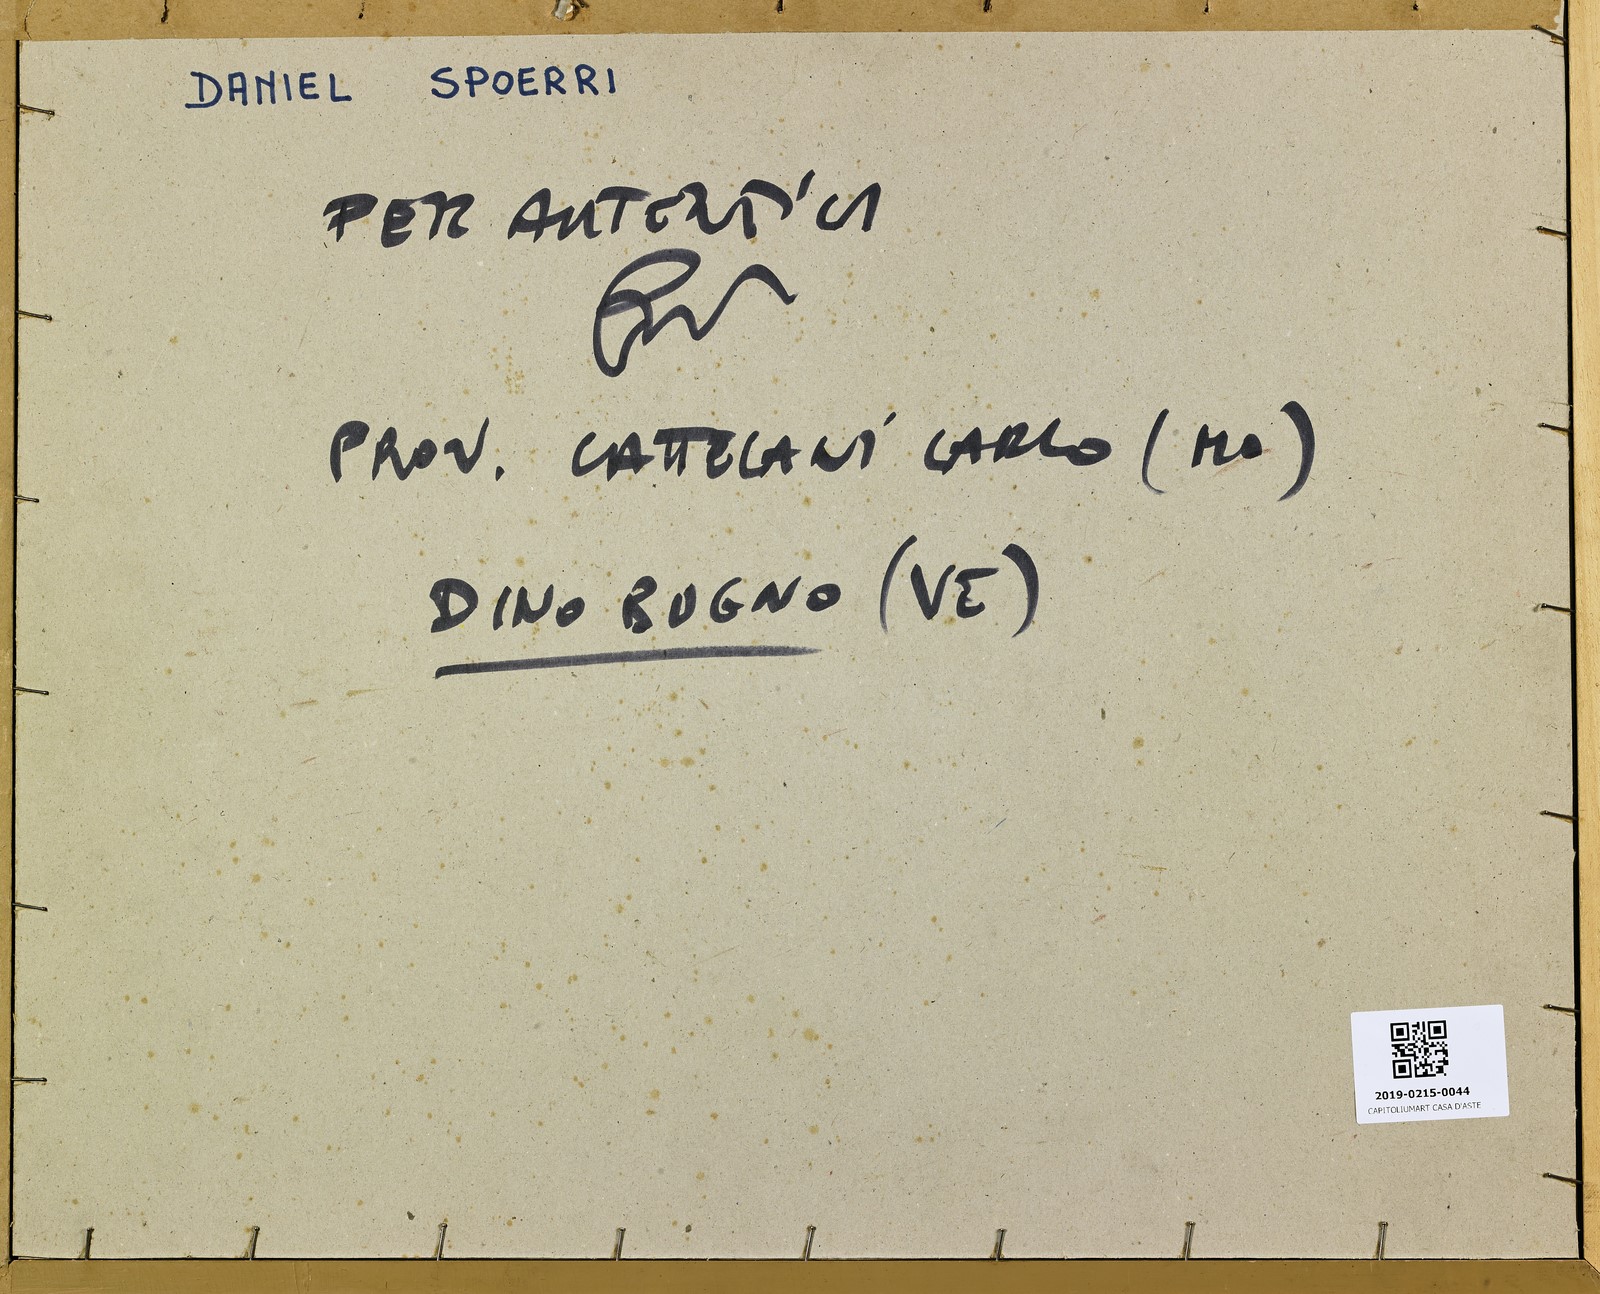 DANIEL SPOERRI
PER AUTENTICA
PROV. CATTELANI CARLO (MO)
DINO BUGNO (VE)
2019-0215-0044
CAPITOLIUMART CASA D'ASTE